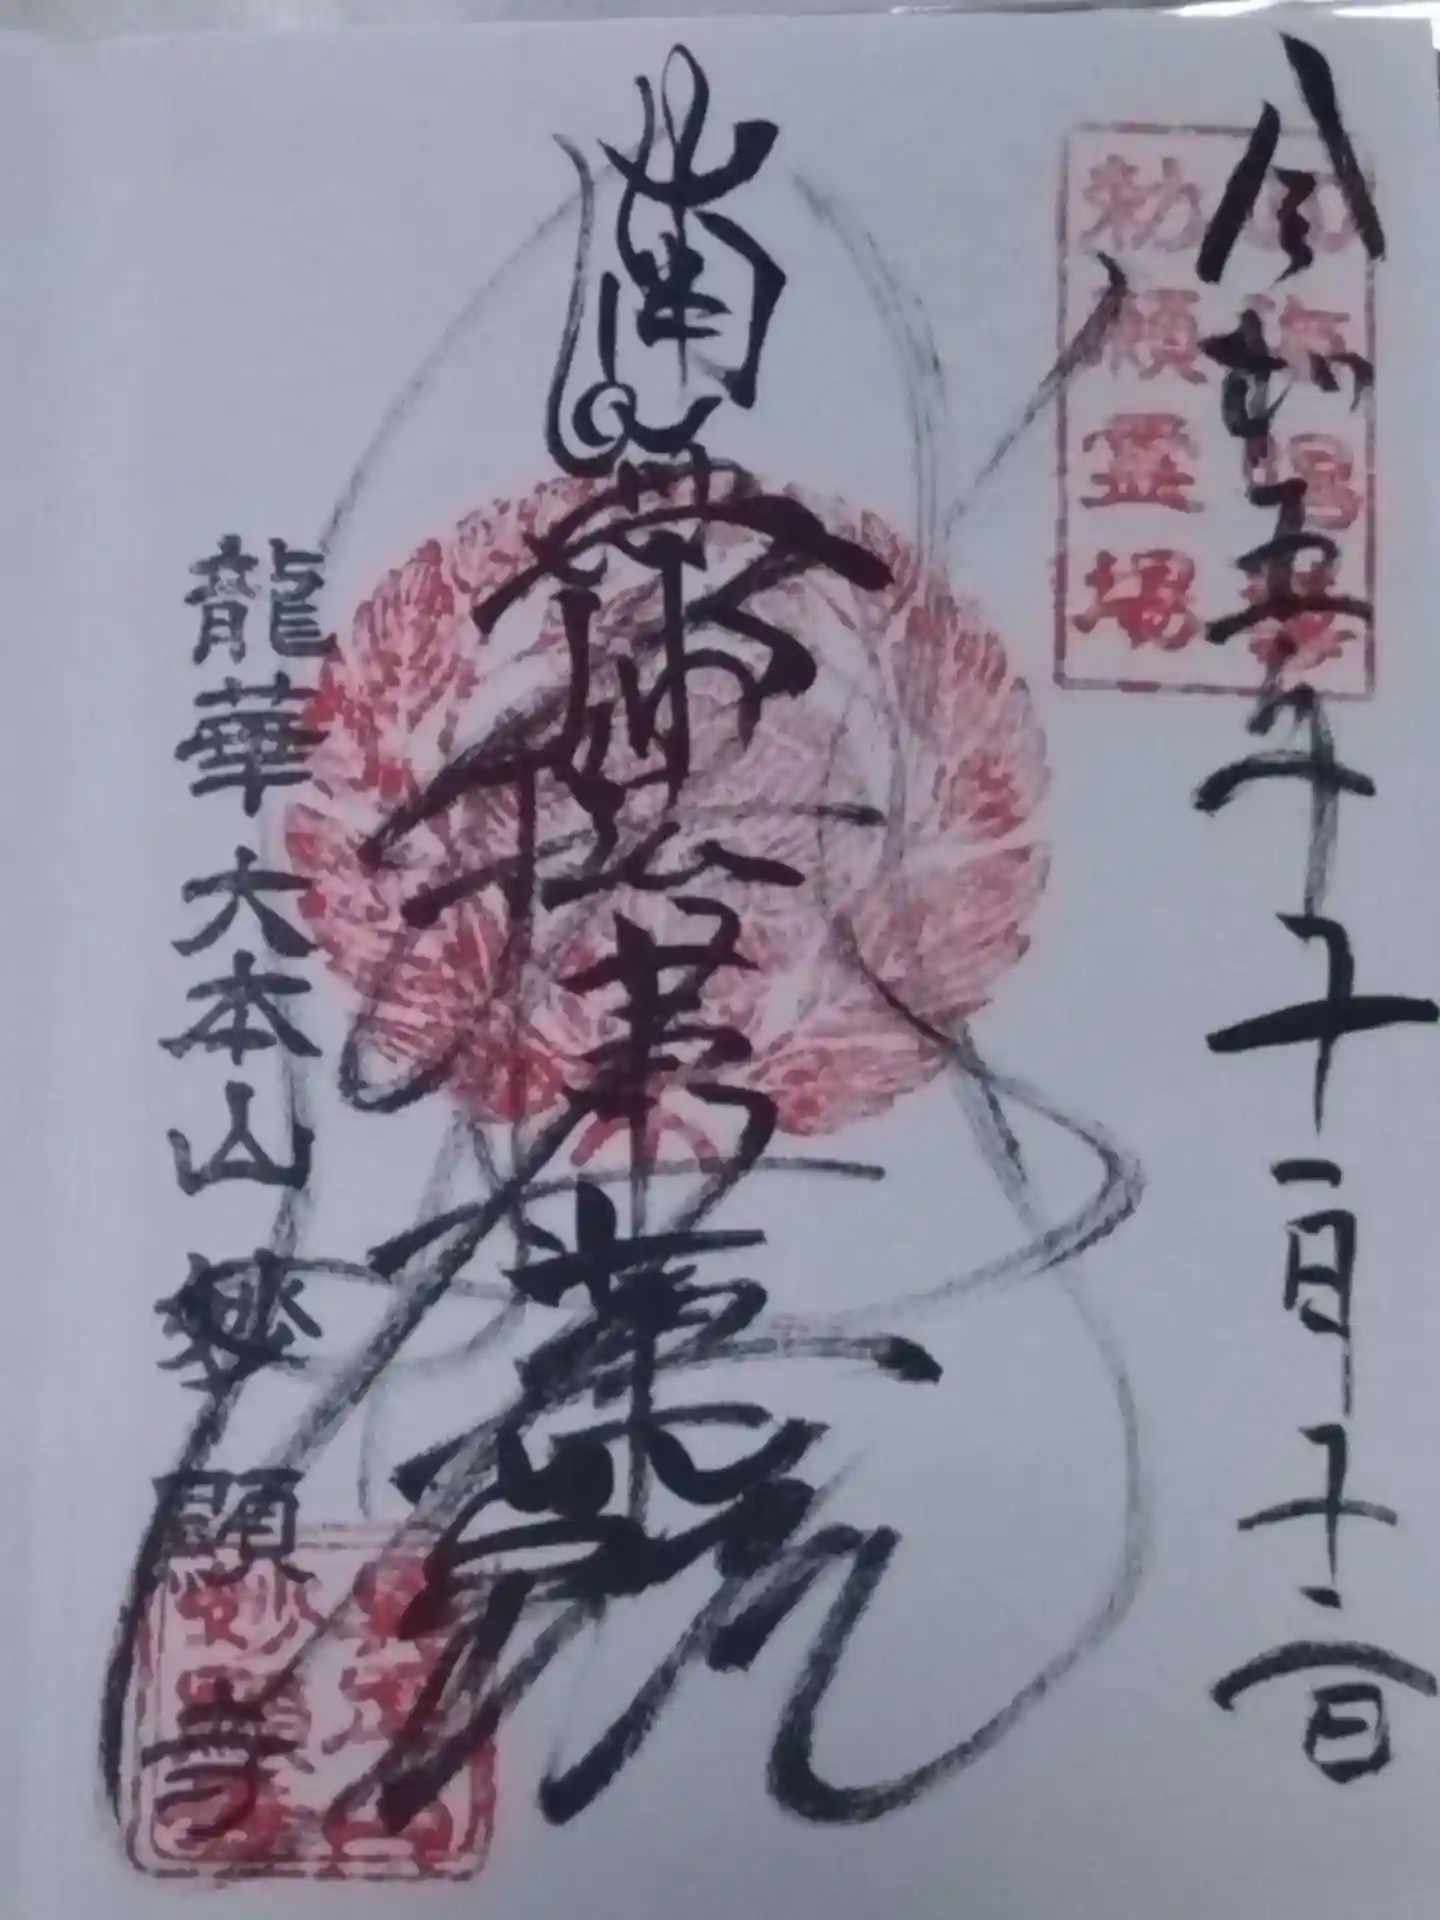 令和五年十一月十二日
四海唱導
勅願霊場
南無妙法蓮華経
龍華 大本山 妙顯寺